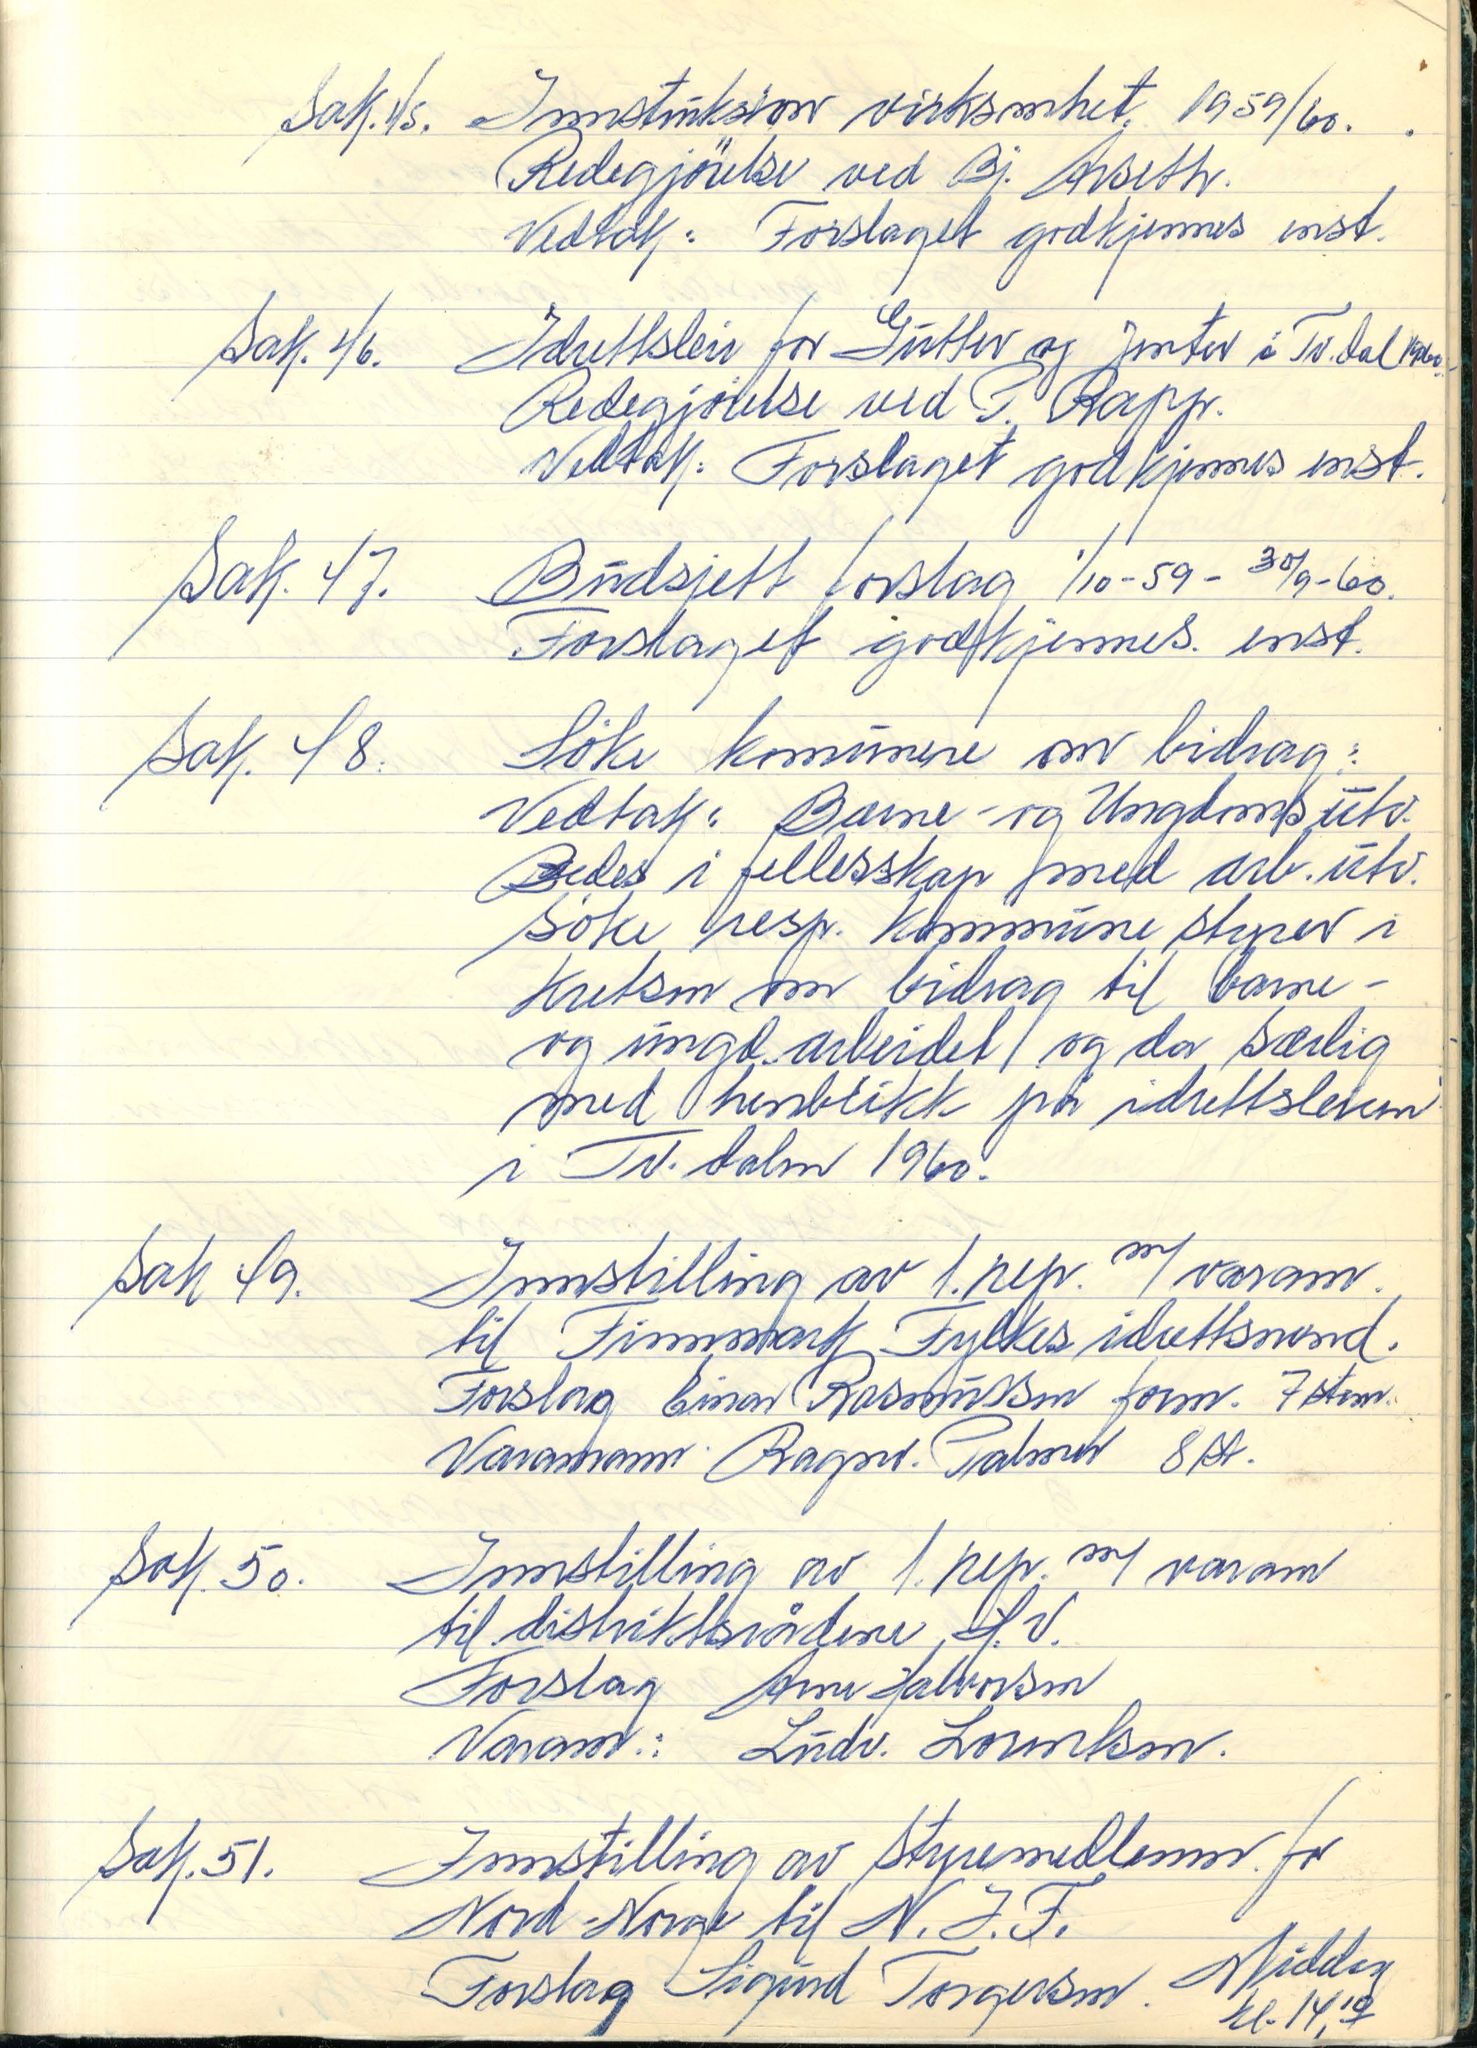 Sak. 45. Innstruksjon virksomhet. 1959/60.
Redegjörelse ved Bj. Arseth.
Vedtak: Forslaget godkjennes enst.
Sak. 46. Idrettsleir for Gutter og Jenter i Tv. dal 1960.
Redegjörelse ved P. Rapp.
Vedtak: Forslaget godkjennes enst.
Sak. 47. Budsjett forslag 1/10-59 - 30/9-60.
Forslaget godkjennes. enst.
Sak. 48. Söke kommune om bidrag:
Vedtak: Barne- og Ungdoms utv.
Bedes i fellesskap med arb. utv.
Söke resp. kommune styrer i
kretsen om bidrag til barne-
og ungd. arbeidet, og da særlig
med henblikk på idrettsleiren
i Tv. dalen 1960.
Sak 49. Innstilling av 1. rep. m/ varam.
til Finnmark Fylkes idrettsnemd.
Forslag Einar Rasmussen form. 7 stem.
Varamann Ragnv. Palmer 8 st.
Sak. 50. Innstilling av 1. rep. m/ varam
til distriktsrådene
Forslag Arne Halvorsen
Varam.: Ludv. Lorentsen.
Sak. 51. Innstilling av Styremedlemm. for
Nord-Norge til N. I. F.
Forslag Sigurd Torgersen. Middag
kl. 14,10